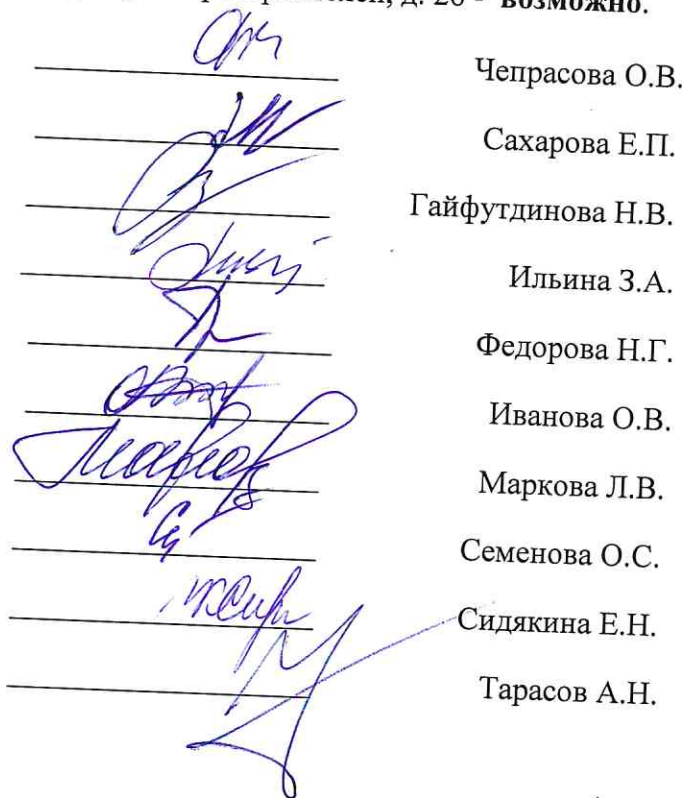 д. 26 - возможно.
Чепрасова О.В.
Сахарова Е.П.
Гайфутдинова Н.В.
Ильина З.А.
Федорова Н.Г.
Иванова О.В.
Маркова Л.В.
Семенова О.С.
Сидякина Е.Н.
Тарасов А.Н.